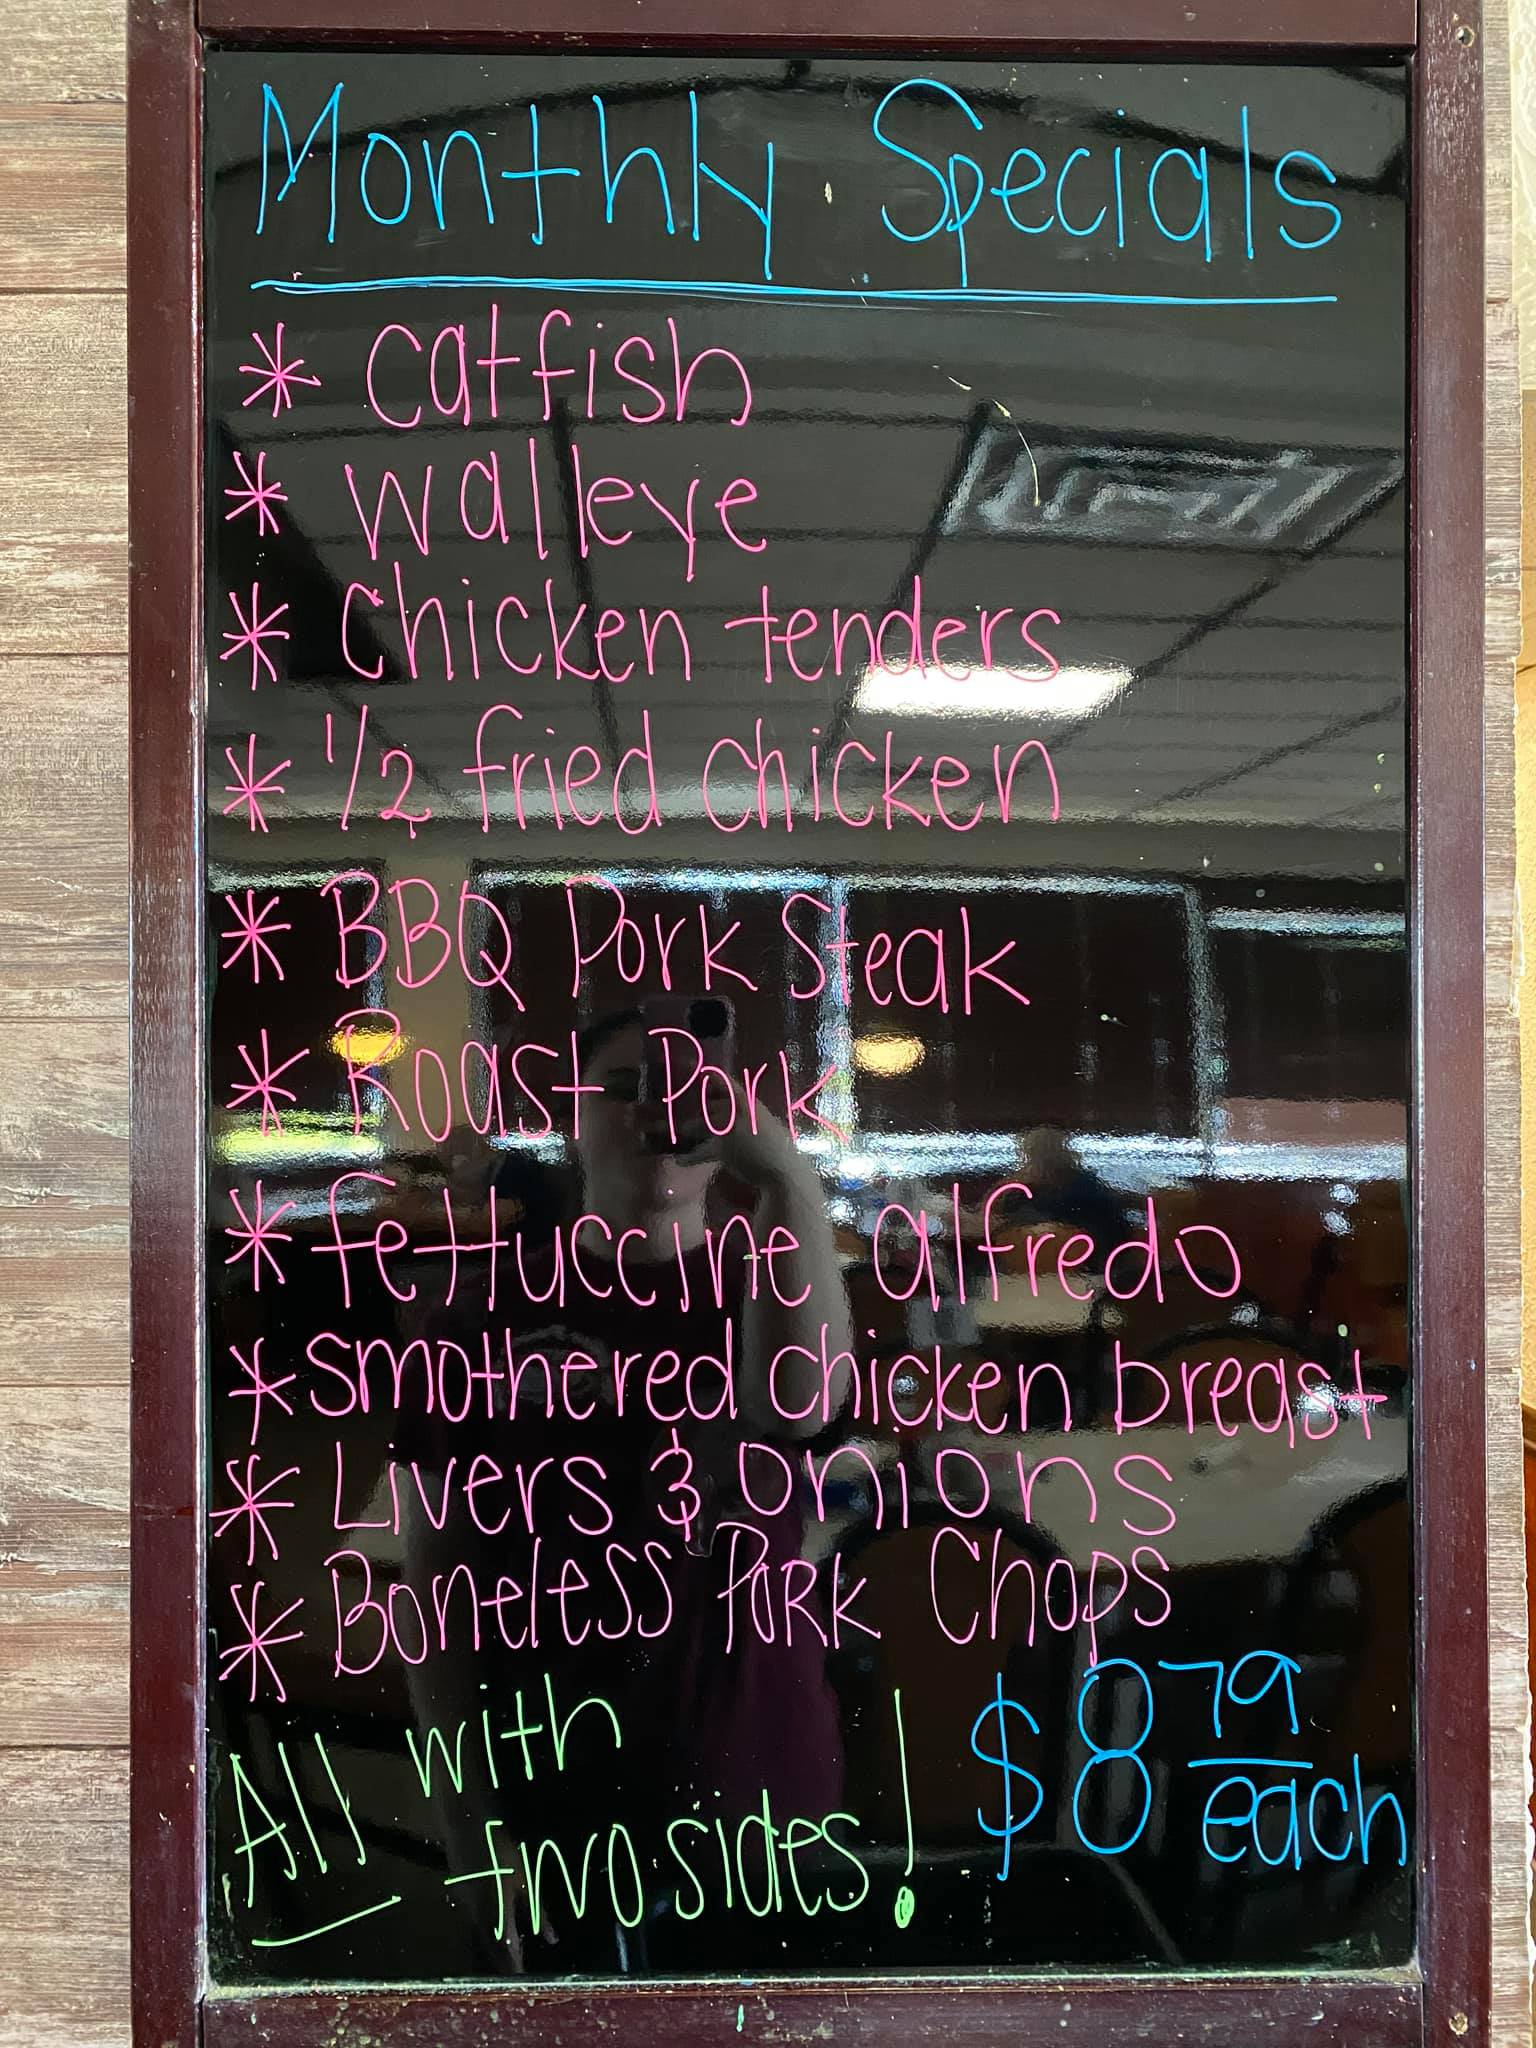 Monthly Specials
* Catfish
* Walleye
* Chicken tenders
* 1/2 fried chicken
* BBQ Pork Steak
* Roast Pork
* fettuccine alfredo
* smothered chicken breast
* Livers & onions
* Boneless Pork Chops
All with two sides!
$8 79 each